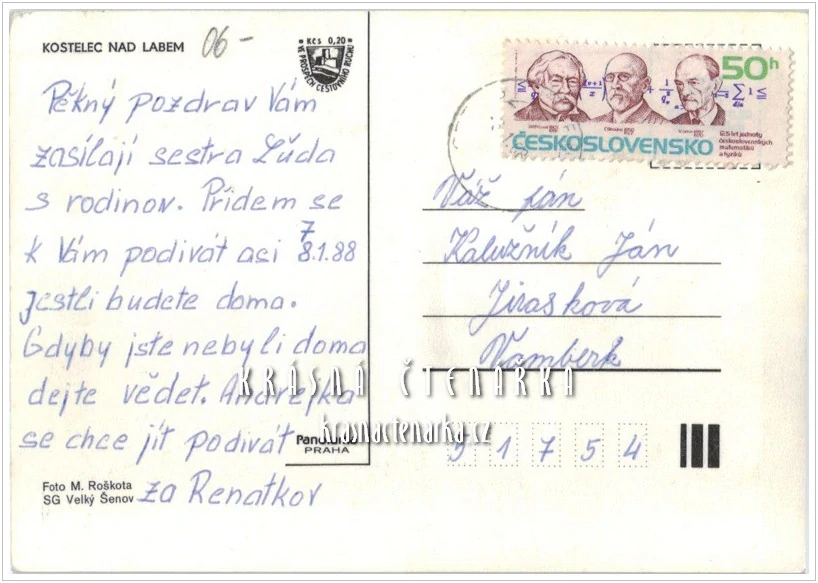 KOSTELEC NAD LABEM
06-
Kčs 0,20
VE PROSPĚCH CESTOVNÍHO RUCHU
Pěkný pozdrav Vám
zasílají sestra Lůda
s rodinov. Přídem se
7
k Vám podivát asi 8.1.88
jestli budete doma.
Gdyby jste nebyli doma
dejte vědet. Andrejka
se chce jít podivát
za Renatkov
Foto M. Roškota
SG Velký Šenov
PRAHA
50h
ČESKOSLOVENSKO
125 let jednoty
československých
matematiků
a fyziků
Váž pán
Kalužník Ján
Jirasková
Vamberk
51754
KRÁSNÁ ČTENÁŘKA
krasnactenarka.cz